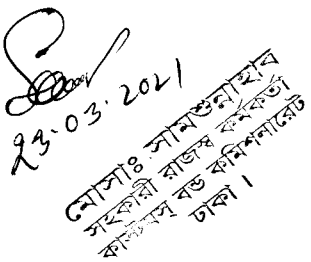 23.03.2021
মোসাঃ সামশুনাহার
সহকারী রাজস্ব কর্মকর্তা
কাস্টমস্ বন্ড কমিশনারেট
ঢাকা।